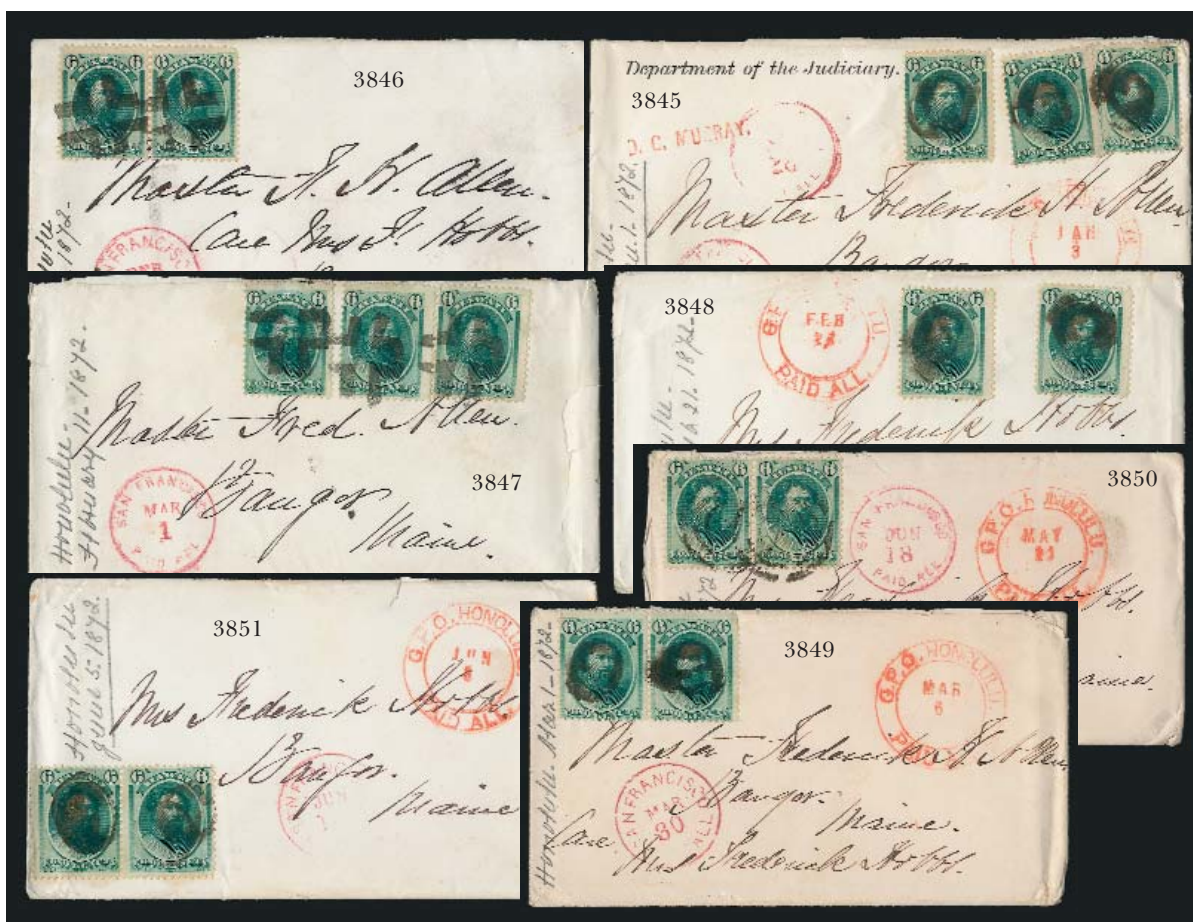 3846
Master F. H. Allen.
Care Mrs F. Hobbs.
1872-
Department of the Judiciary.
3845
D. C. MURRAY.
20
Master Frederick H. Allen
Bangor
JAN
3
1872
3847
Honolulu-
February 11-1872
Master Fred. Allen.
Bangor.
Maine.
SAN FRANCISCO
MAR
1
PAID ALL
3848
FEB
PAID ALL.
21. 1872-
Mrs Frederick Hobbs.
3850
SAN FRANCISCO
JUN
18
PAID ALL
G.P.O. HONOLULU.
MAY
1872
3851
Honolulu
June 5. 1872.
G.P.O. HONOLULU
JUN
PAID ALL.
Mrs Frederick Hobbs
Bangor.
Maine
JUN
3849
Honolulu. Mar 1-1872-
G.P.O. HONOLULU.
MAR
6
Master Frederick H. Allen
Bangor.
Maine.
Care Mrs Frederick Hobbs.
SAN FRANCISCO
MAR
30
ALL